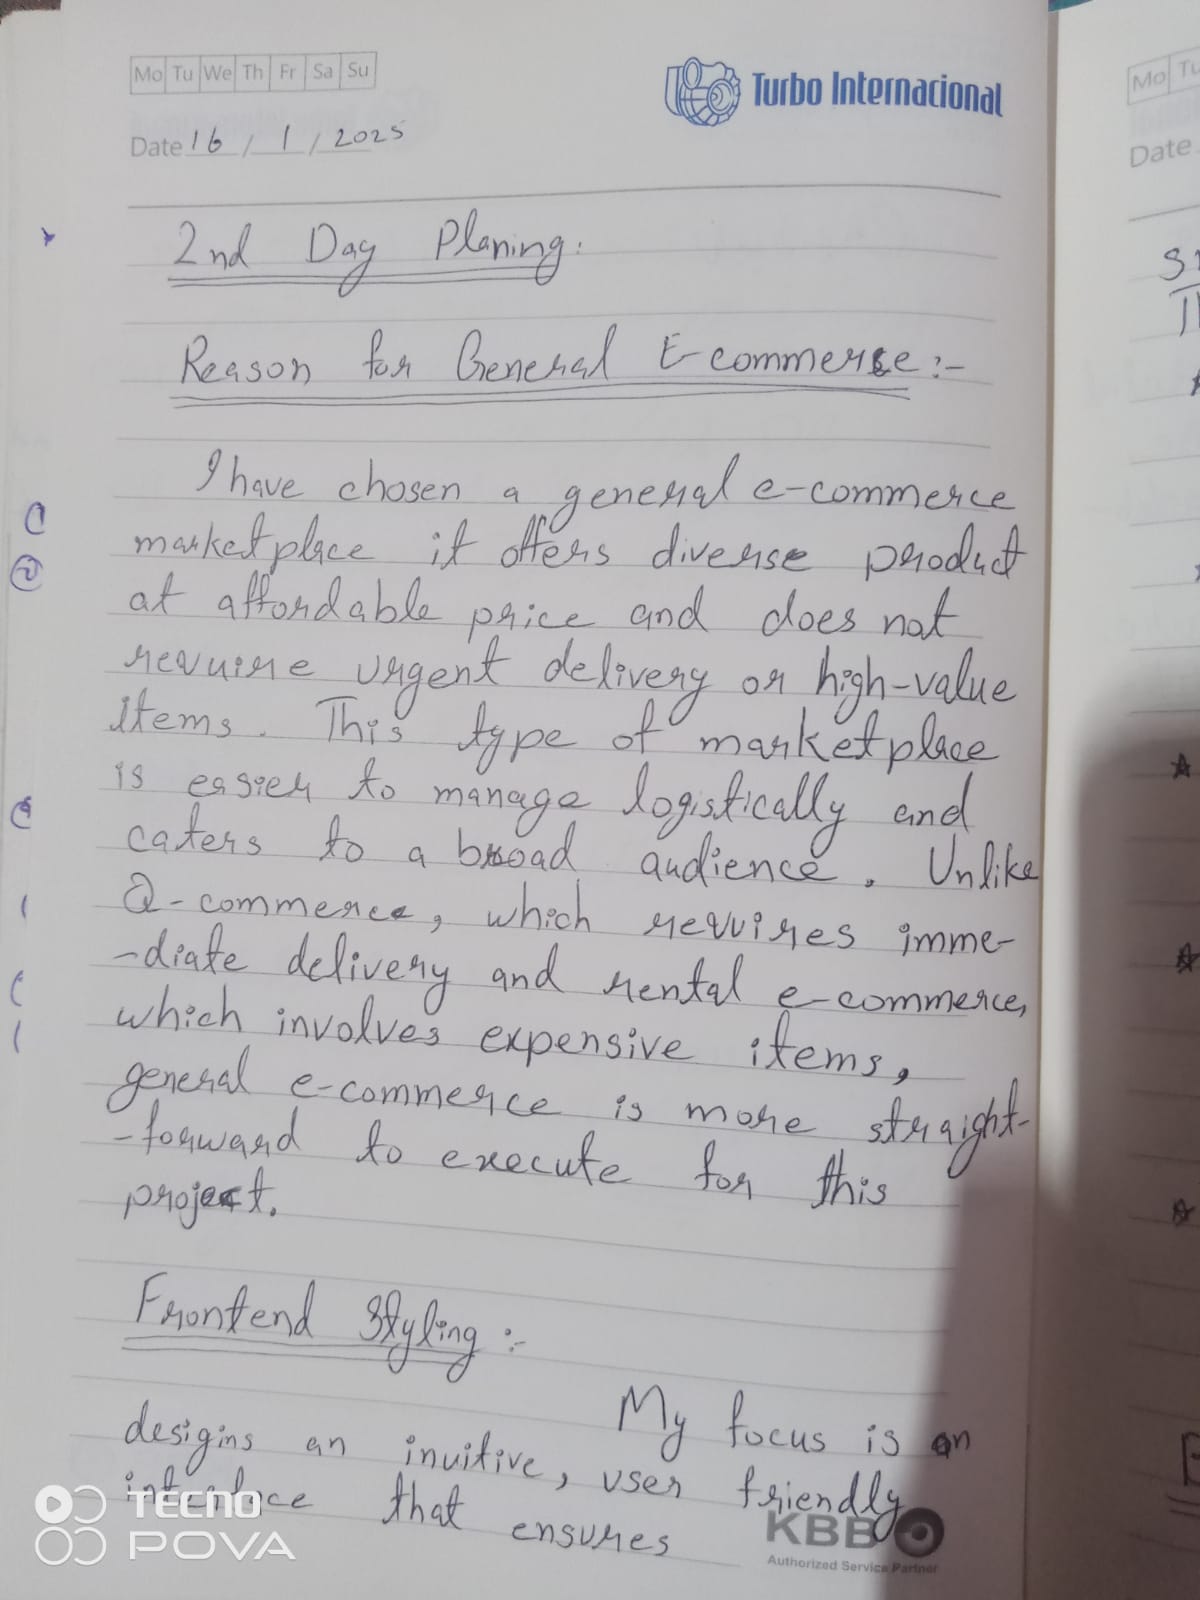 Mo Tu We Th Fr Sa Su
Turbo Internacional
Date 16 / 1 / 2025
2nd Day Planing:
Reason for General E-commerce:-
I have chosen a general e-commerce
marketplace it offers diverse product
at affordable price and does not
require urgent delivery or high-value
items. This type of marketplace
is easier to manage logistically and
caters to a broad audience. Unlike
Q-commerce, which requires imme-
-diate delivery and rental e-commerce,
which involves expensive items,
general e-commerce is more straight-
-forward to execute for this
project.
Frontend Styling:-
My focus is on
desigins an inuitive, user friendly
interface that ensures
KBB
Authorized Service Partner
TECNO
POVA
Mo Tu
Date